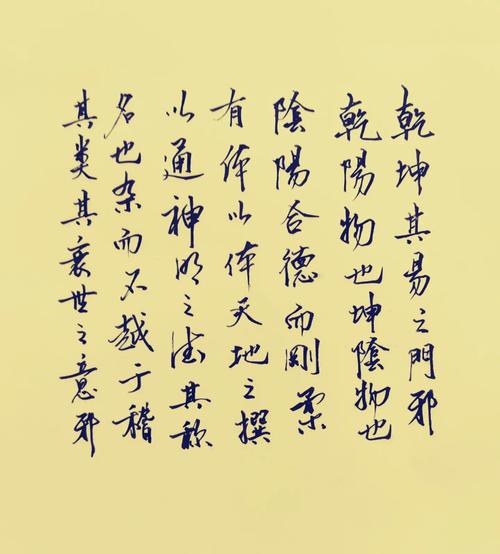 乾坤其易之門邪
乾陽物也坤陰物也
陰陽合德而剛柔
有体以体天地之撰
以通神明之德其称
名也杂而不越于稽
其类其衰世之意邪